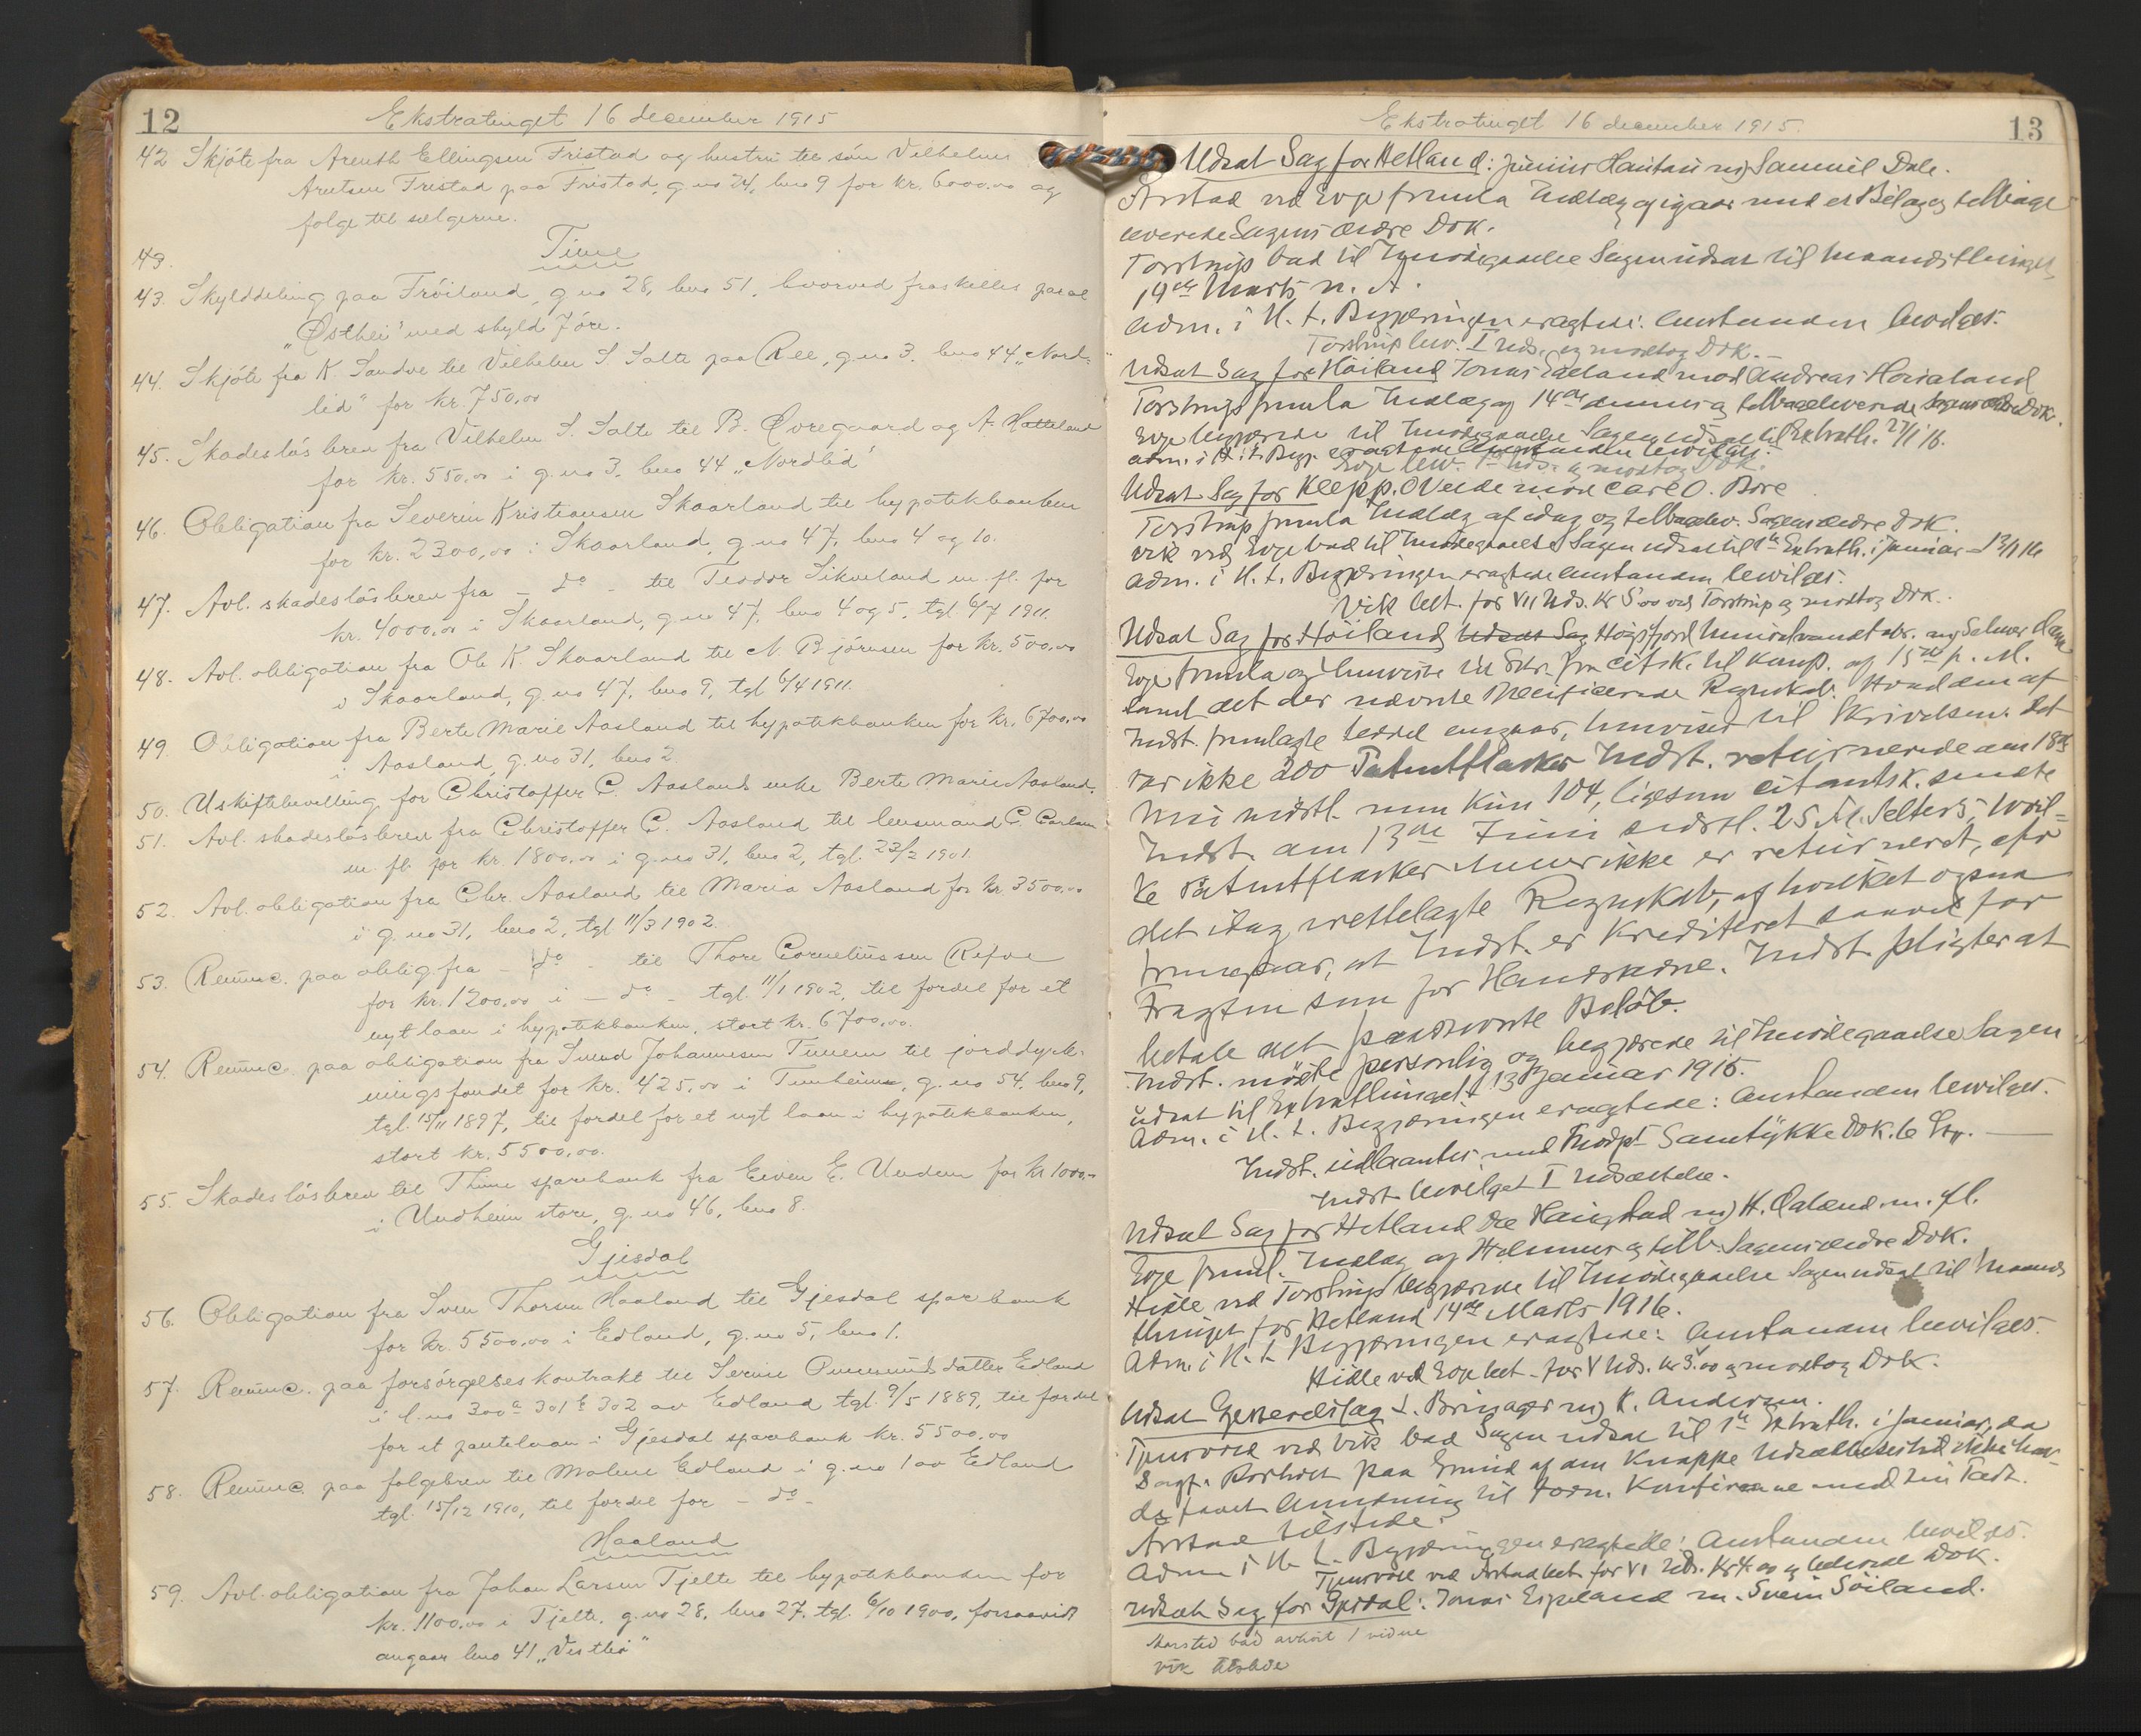 12
Ekstratinget 16 december 1915
42 Skjöte fra Arenth Ellingsen Fristad og hustru til sön Vilhelm
Arntsen Fristad paa Fristad, g. no 24, bno 9 for kr. 6000.00 og
folge til sælgerne.
Time
43.
43. Skylddeling paa Fröiland, g. no 28, bno 51, hvorved fraskilles parcel
"Østhei" med skyld 7 öre.
44. Skjöte fra K. Sandve til Vilhelm S. Salte paa Ree, g. no 3. bno 44 „Nord-
lid" for kr. 750.00
45. Skadeslösbrev fra Vilhelm S. Salte til B. Øvregaard og A. Hatteland
for kr. 550.00 i g. no 3, bno 44 „Nordlid"
46. Obligation fra Severin Kristiansen Skaarland til hypotekbanken
for kr. 2300,00 i Skaarland, g. no 47, bno 4 og 10.
47. Avl. skadeslösbrev fra - do - til Teodor Sikveland m. fl. for
kr. 4000.00 i Skaarland, g. no 47, bno 4 og 5, tgl 6/7 1911.
48. Avl. obligation fra Ole K. Skaarland til N. Björnsen for kr. 500,00
i Skaarland, g. no 47, bno 9, tgl 6/4 1911.
49. Obligation fra Berte Marie Aasland til hypotekbanken for kr. 6700,00
i Aasland, g. no 31, bno 2.
50. Uskiftebevilling for Christoffer C. Aaslands enke Berte Marie Aasland.
51. Avl. skadeslösbrev fra Christoffer C. Aasland til lensmand C Carlsen
m. fl. for kr. 1800.00 i g. no 31, bno 2, tgl. 23/2 1901.
52. Avl. obligation fra Chr. Aasland til Maria Aasland for kr. 3500.00
i g. no 31, bno 2, tgl 11/3 1902.
53. Renunc. paa oblig. fra - do - til Thore Corneliussen Refve
for kr. 1200,00 i - do - tgl. 11/1 1902, til fordel for et
nyt laan i hypotekbanken, stort kr. 6700,00.
54. Renunc. paa obligation fra Svend Johannesen Tunem til jorddyrk-
ningsfondet for kr. 425,00 i Tunheim, g. no 54, bno 9,
tgl. 15/11 1897, til fordel for et nyt laan i hypotekbanken,
stort kr. 5500,00.
55. Skadeslösbrev til Thime sparebank fra Eiven E. Undem for kr 1000.-
i Undheim store, g. no 46, bno 8.
Gjesdal
56. Obligation fra Sven Thorsen Haaland til Gjesdal sparebank
for kr. 5500.00 i Edland, g. no 5, bno 1.
57. Renunc. paa forsörgelseskontrakt til Serine datter Edland
i l. no 300a 301b 302 av Edland tgl. 9/5 1889, til fordel
for et pantelaan i Gjesdal sparebank kr. 5500.00
58. Renunc. paa folgebrev til Malene Edland i g. no 1 av Edland
tgl. 15/12 1910, til fordel for - do -
Haaland
59. Avl. obligation fra Johan Larsen Tjelte til hypotekbanken for
kr. 1100.00 i Tjelte, g. no 28, bno 27, tgl. 6/10 1900, forsaavidt
angaar bno 41 „Vesthei"
Ekstratinget 16 december 1915.
13
Udsat Sag for Hetland: mod Samuel Dale.
Arstad ved Eoje Indlæg af igaar med et Bilag og tilbage
leverede Sagens ældre Dok.
Torstrup bad til Imödegaaelse Sagen udsat til Maanedsthinget
14de Marts n. A.
Adm. i H. t. Begjæringen eragtede: Anstanden bevilges.
Torstrup bev. I Uds. og modtog Dok. -
Udsat Sag for Höiland Jonas Egeland mod Andreas Hovland
Torstrup Indlæg af 14de dennes og tilbageleverede Sagens ældre Dok.
Eoje begjærede til Imödegaaelse Sagen udsat til Extrath. 27/1 16.
adm. i H. t. Begj. eragtede Anstanden bevilges.
Eoje bev. I Uds. og modtog Dok.
Udsat Sag for Klepp. O Veede mod Carl O. Bore
Torstrup Indlæg af idag og tilbagelev. Sagens ældre Dok.
Vik ved Eoje bad til Imödegaaelse Sagen udsat til 1te Extrath. i Januar - 13/1 16
Adm. i H. t. Begjæringen eragtede Anstanden bevilges.
Vik bet. for VII Uds. Kr 5.00 ved Torstrup og modtog Dok.
Udsat Sag for Höiland Udsat Sag Högsfjord Mineralvandfabr. mod
Eoje til Skr. fra Citsk. til Kmsp. af 15de p. M.
samt det der nævnte specificerede Regnskab. Hvad den af
Indst. fremlagte Seddel angaar, henvises til Skrivelsen. Det
var ikke 200 Patentflasker Indst. returnerede den 18de
Mai men kun 104, ligesom Citantsk. sendte
Indst. den 13de Juni 25 Fl. Selters, hvil-
ke Patentflasker ikke er returneret, cfr
det idag rettelagte Regnskab, af hvilket ogsaa
fremgaar, at Indst. er krediteret saavel for
Fragten som for Handskerne. Indst. pligter at
betale det paastævnte Belöb.
Indst. mödte personlig og begjærede til Imödegaaelse Sagen
udsat til Extrathinget 13 Januar 1916.
Adm. i H. t. Begjæringen eragtede: Anstanden bevilges.
Indst. udlaantes med Modpt Samtykke Dok.
Indst. bevilget I Udsættelse.
Udsat Sag for Hetland m. fl.
Eoje Indlæg og tilb. Sagens ældre Dok.
Hidle ved Torstrup begjærede til Imödegaaelse Sagen udsat til Maaneds
thinget for Hetland 14de Marts 1916.
Adm. i H. t. Begjæringen eragtede: Anstanden bevilges.
Hidle ved Eoje bet. for V Uds. Kr 3.00 og modtog Dok.
Udsat Gjesteretssag K. Andersen.
Tjensvold ved Vik bad Sagen udsat til 1te Extrath. i Januar, da
Sagf. paa Grund af den knappe Udsættelsestid ikke hav-
de faaet Anledning til at konferere med sin Part.
Arstad tilstede.
Adm i H. t. Begjæringen eragtede: Anstanden bevilges.
Tjensvold ved Arstad bet. for VI Uds. Kr 4.00 og Dok.
Udsat Sag for Gjesdal: Jonas Espeland m. Svein Söiland.
bad avhört 1 vidne
Vik tilstede